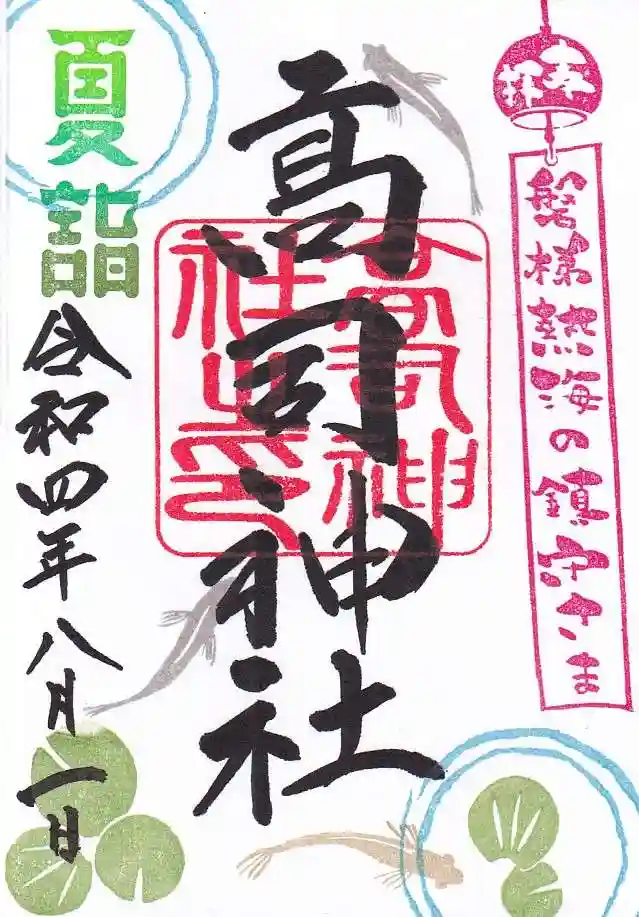 奉拝
磐梯熱海の鎮守さま
高司神社
高司神社之印
夏詣
令和四年八月一日